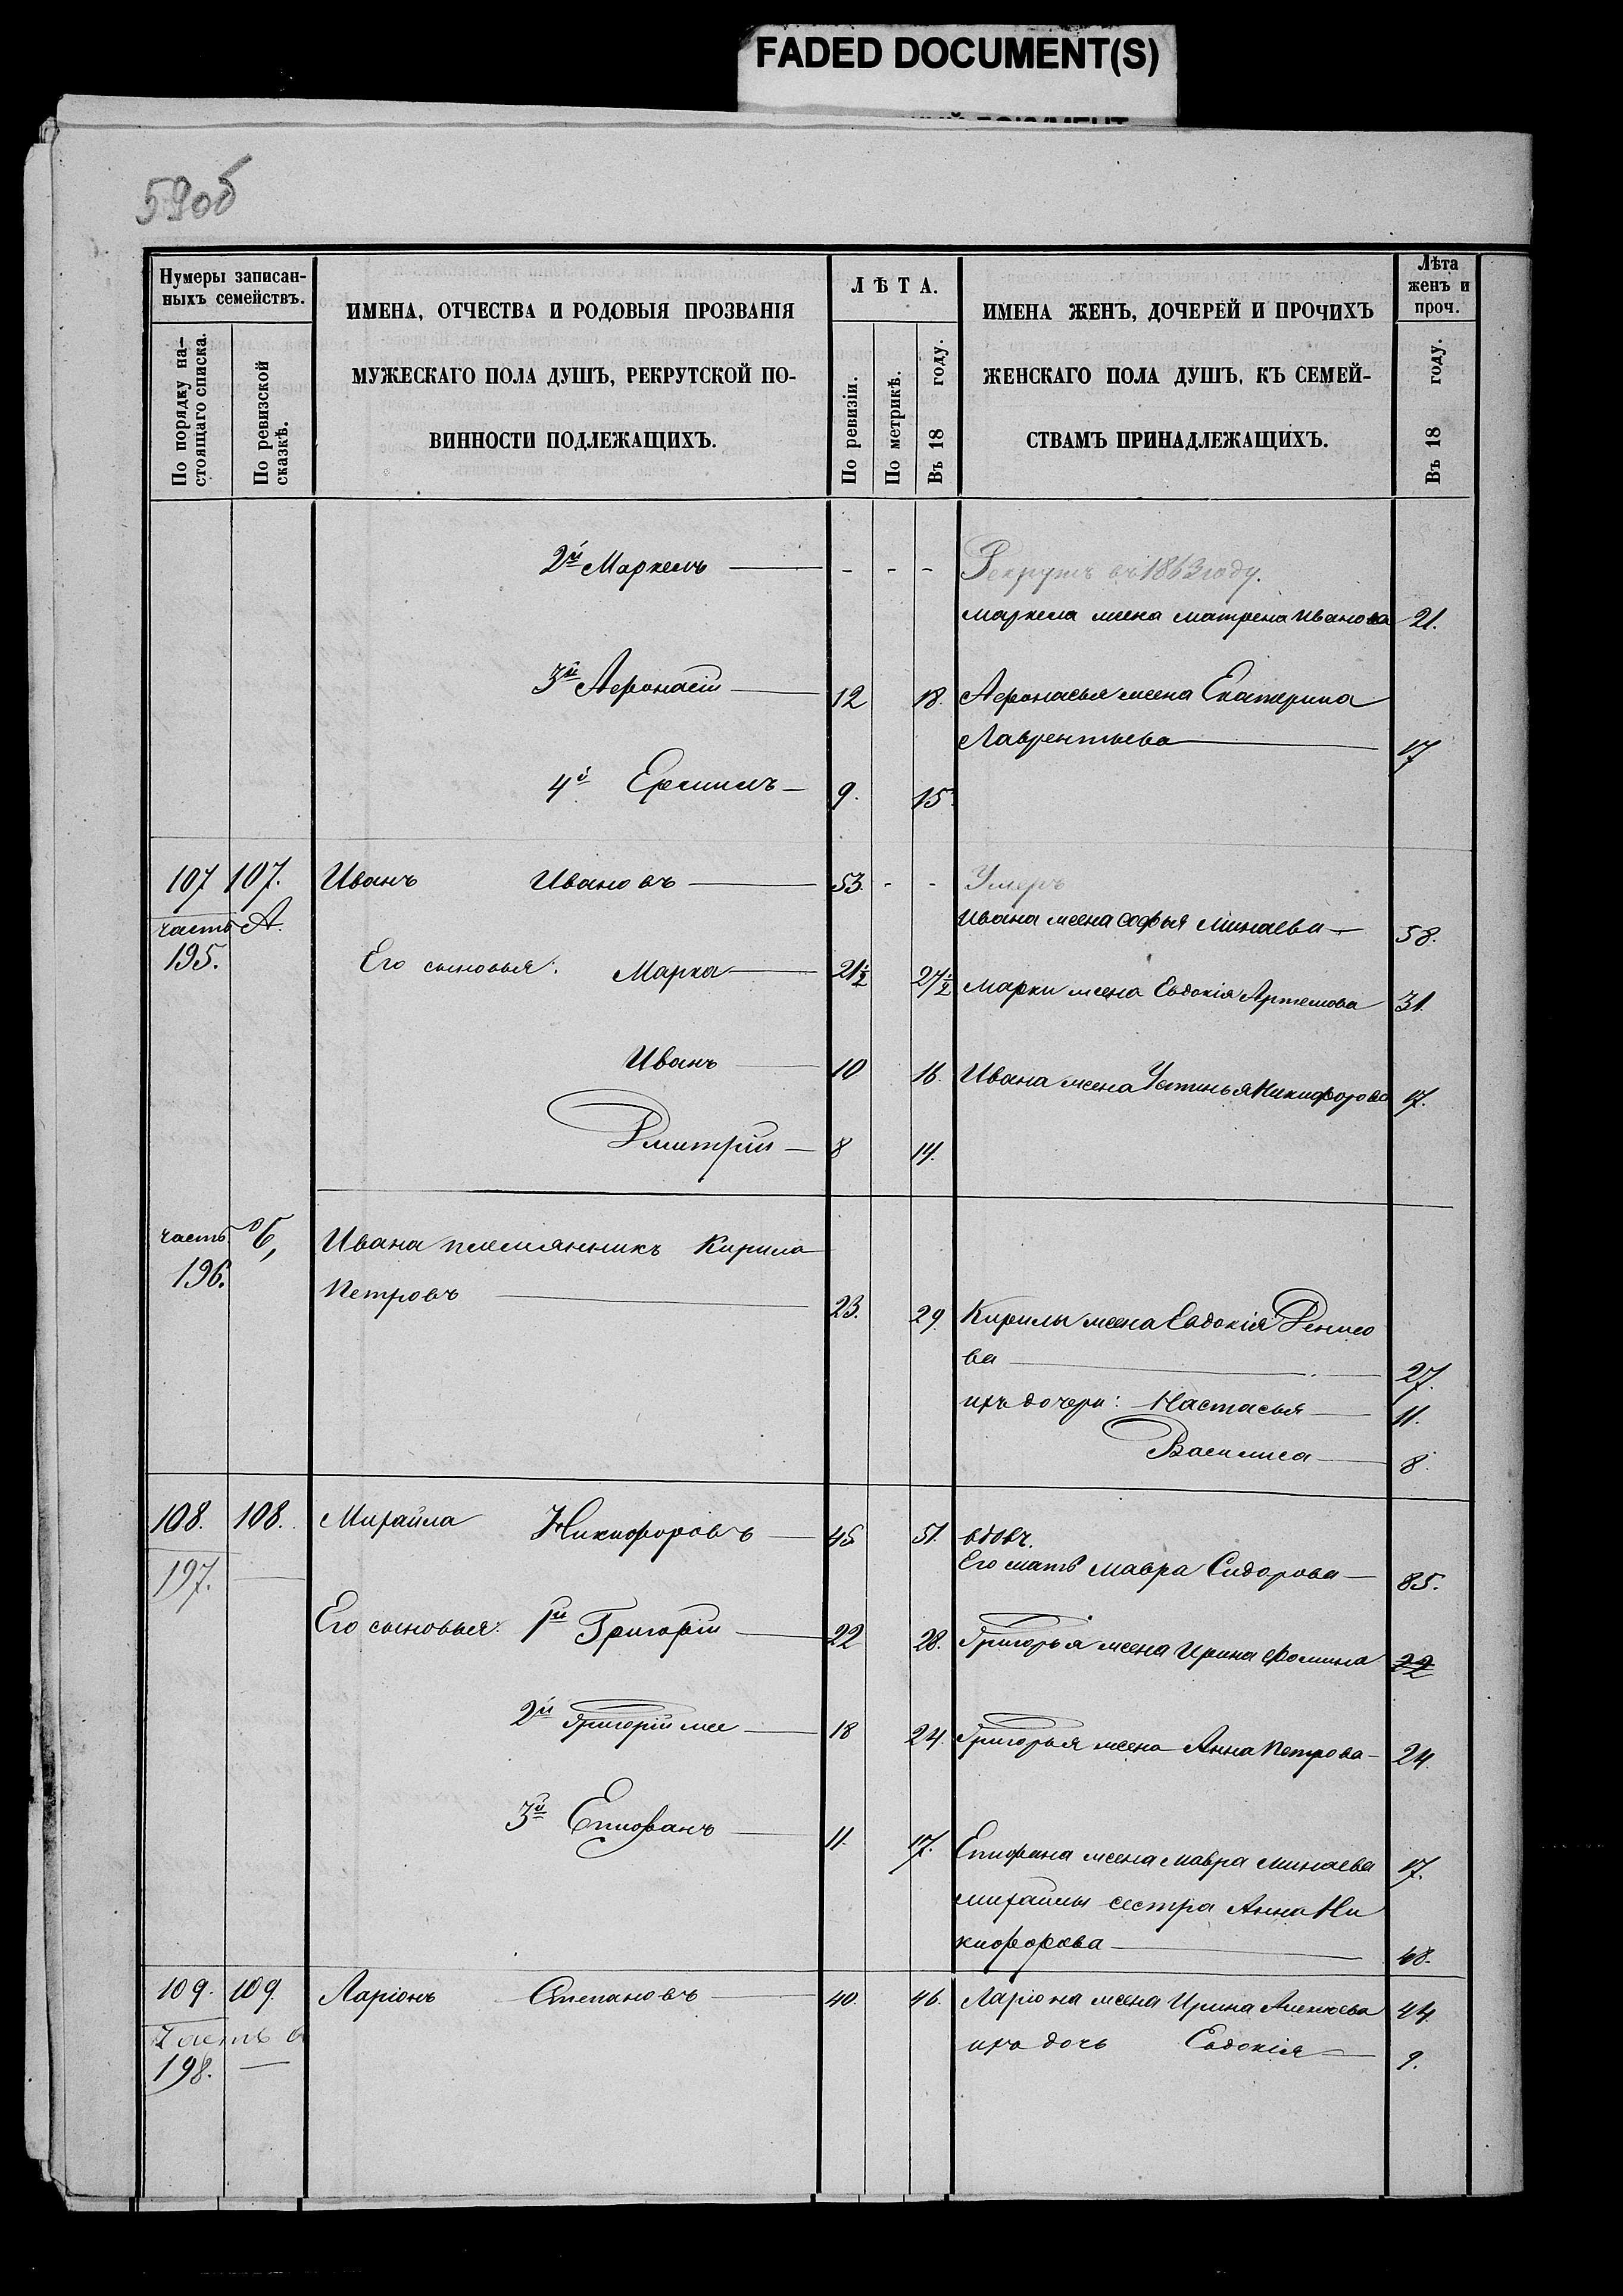 FADED DOCUMENT(S)
59об
Нумеры записан-
ныхъ семействъ.
По порядку на-
стоящаго списка.
По ревизской
сказкѣ.
ИМЕНА, ОТЧЕСТВА И РОДОВЫЯ ПРОЗВАНІЯ
МУЖЕСКАГО ПОЛА ДУШЪ, РЕКРУТСКОЙ ПО-
ВИННОСТИ ПОДЛЕЖАЩИХЪ.
ЛѢТА.
По ревизіи.
По метрикѣ.
Въ 18 году.
ИМЕНА ЖЕНЪ, ДОЧЕРЕЙ И ПРОЧИХЪ
ЖЕНСКАГО ПОЛА ДУШЪ, КЪ СЕМЕЙ-
СТВАМЪ ПРИНАДЛЕЖАЩИХЪ.
Лѣта
женъ и
проч.
Въ 18 году.
2й Маркелъ — - - - Рекрутъ въ 1863 году.
Маркела жена Матрена Иванова 21.
3й Афонасій — 12 18. Афонасья жена Екатерина
Лаврентьева — 17
4й Ермилъ — 9. 15.
107 107. Иванъ Ивановъ — 53. - - Умеръ
часть А. Ивана жена Софья Минаева — 58.
195. Его сыновья: Марка — 21½ 27½ Марки жена Евдокія Артемова 31.
Иванъ — 10 16. Ивана жена Устинья Никифорова 17.
Дмитрій — 8 14.
часть б, Ивана племянникъ Кирила
196. Петровъ — 23. 29. Кирилы жена Евдокія Денисо
ва — 27.
ихъ дочери: Настасья — 11.
Василиса — 8.
108. 108. Михайла Никифоровъ — 45 51. вдовъ.
197. — Его мать Мавра Сидорова — 85.
Его сыновья: 1й Григорій — 22 28. Григорья жена Ирина Фомина 22
2й Григорій же — 18 24. Григорья жена Анна Петрова — 24.
3й Епифанъ — 11. 17. Епифана жена Мавра Минаева 17.
Михайлы сестра Анна Ни
кифорова — 48.
109. 109. Ларіонъ Степановъ — 40. 46. Ларіона жена Ирина 44.
Часть а ихъ дочь Евдокія — 9.
198. —